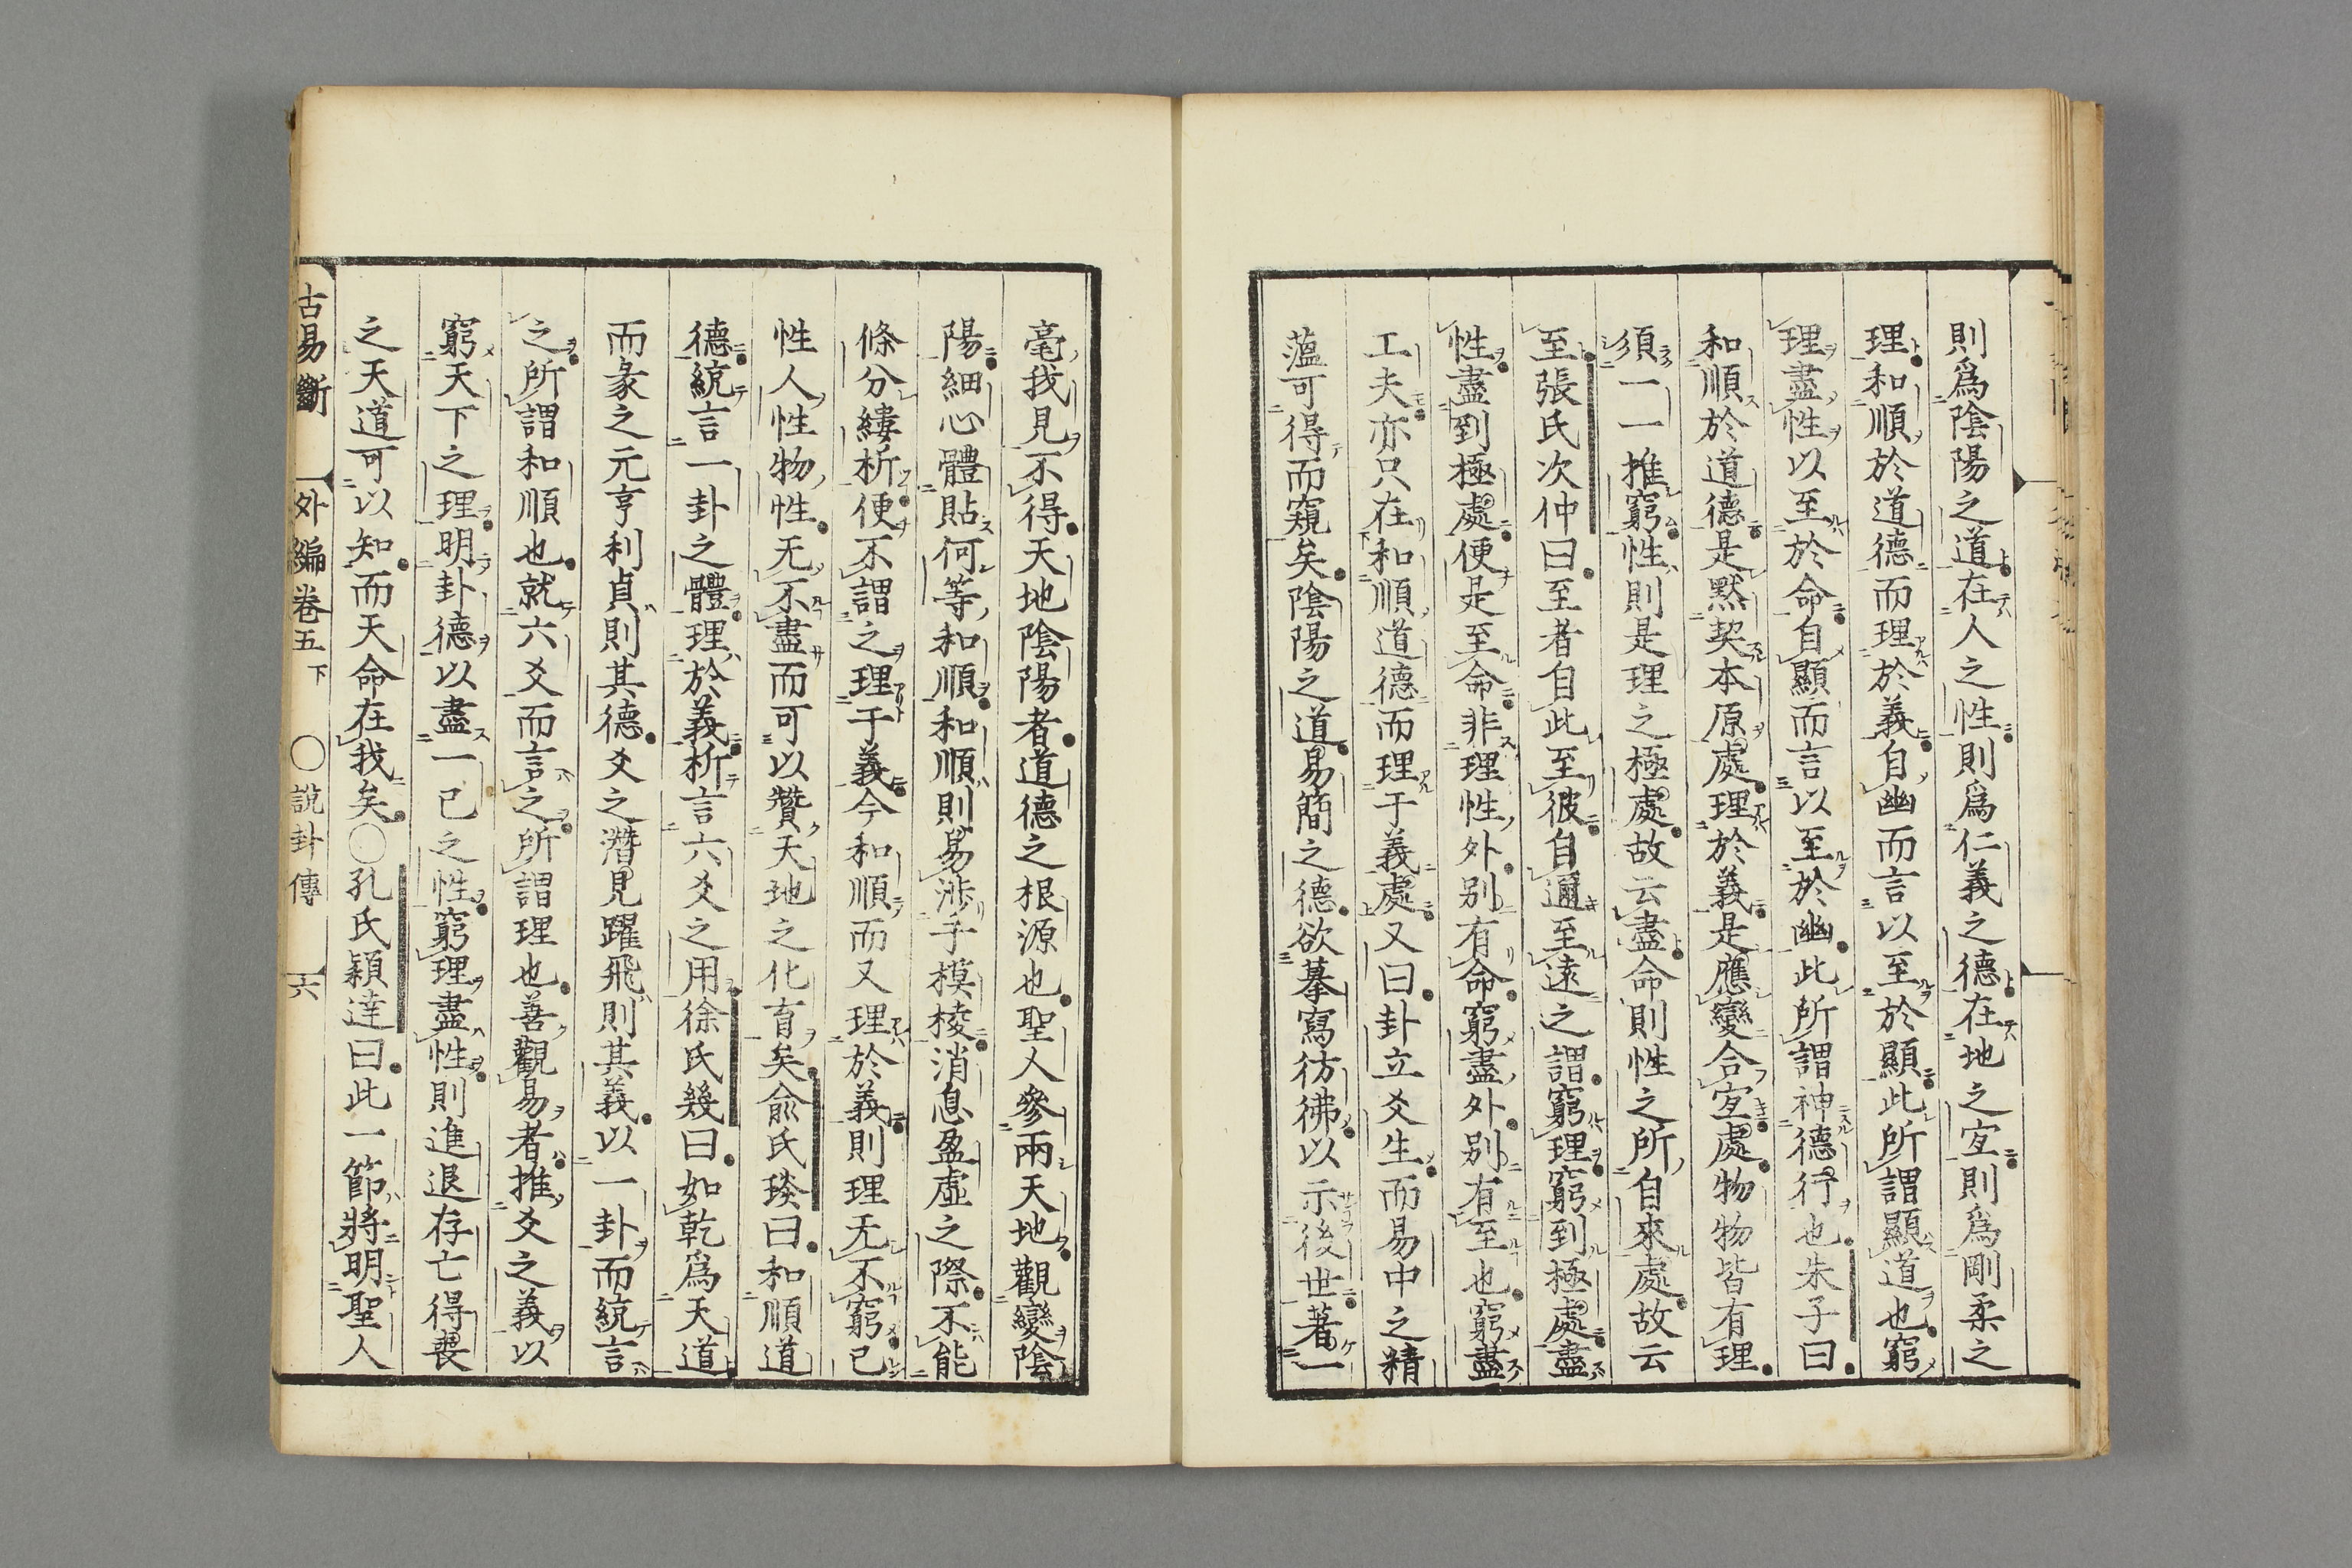 則爲陰陽之道在人之性則爲仁義之德在地之宜則爲剛柔之
理和順於道德而理於義自幽而言以至於顯此所謂顯道也窮
理盡性以至於命自顯而言以至於幽此所謂神德行也朱子曰
和順於道德是默契本原處理於義是應變合宜處物物皆有理
須一一推窮性則是理之極處故云盡命則性之所自來處故云
至張氏次仲曰至者自此至彼自邇至遠之謂窮理窮到極處盡
性盡到極處便是至命非理性外別有命窮盡外別有至也窮盡
工夫亦只在和順道德而理于義處又曰卦立爻生而易中之精
薀可得而窺矣陰陽之道易簡之德欲摹寫彷彿以示後世著一
毫我見不得天地陰陽者道德之根源也聖人參兩天地觀變陰
陽細心體貼何等和順和順則易渉手模稜消息盈虛之際不能
條分縷析便不謂之理于義今和順而又理於義則理无不窮己
性人性物性无不盡而可以贊天地之化育矣兪氏琰曰和順道
德統言一卦之體理於義析言六爻之用徐氏幾曰如乾爲天道
而彖之元亨利貞則其德爻之潛見躍飛則其義以一卦而統言
之所謂和順也就六爻而言之所謂理也善觀易者推爻之義以
窮天下之理明卦德以盡一己之性窮理盡性則進退存亡得喪
之天道可以知而天命在我矣○孔氏穎達曰此一節將明聖人
古易斷 外編卷五下 ○說卦傳 六